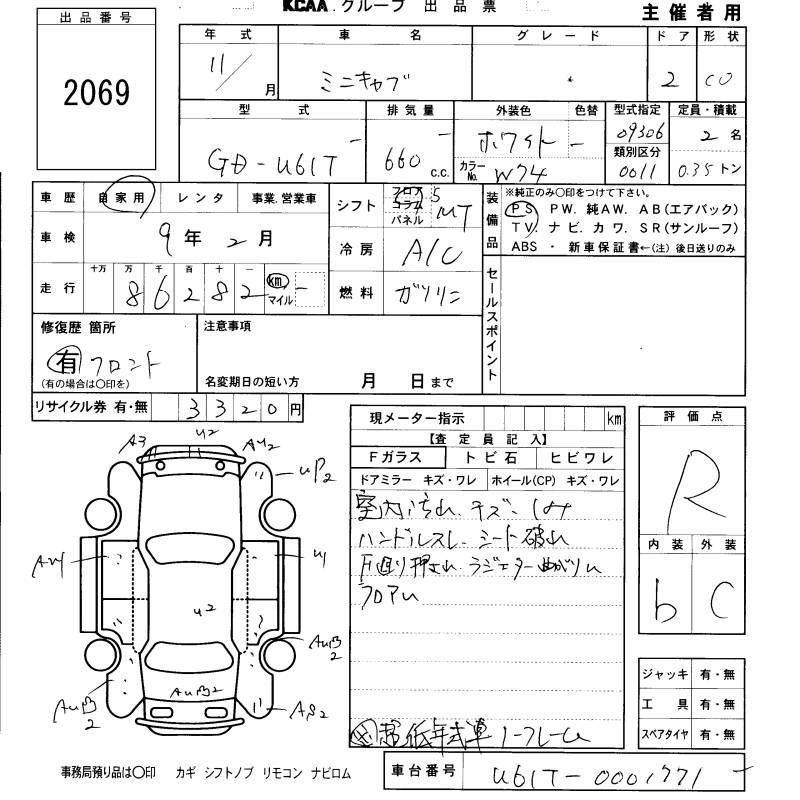 KCAA グループ 出品票
主催者用
出品番号
2069
年式 車名 グレード ドア 形状
11/ 月 ミニキャブ 2 CO
型式 排気量 外装色 色替 型式指定 定員・積載
GD-U61T 660 c.c. ホワイト 09306 2名
カラーNo. W74 類別区分 0011 0.35トン
車歴 自家用 レンタ 事業.営業車
シフト フロア コラム パネル 5 MT
装備品 ※純正のみ〇印をつけて下さい。
PS PW. 純AW. AB(エアバック)
TV. ナビ. カワ. SR(サンルーフ)
ABS ・ 新車保証書←(注) 後日送りのみ
車検 9年2月
冷房 A/C
走行 十万 万 千 百 十 一
86282 km マイル
燃料 ガソリン
セールスポイント
修復歴 箇所
有 フロント
(有の場合は〇印を)
注意事項
名変期日の短い方 月 日まで
リサイクル券 有・無 3320円
現メーター指示 km
【査定員記入】
Fガラス トビ石 ヒビワレ
ドアミラー キズ・ワレ ホイール(CP) キズ・ワレ
室内汚れ.キズ.シミ
ハンドルスレ シート破れ
評価点
R
内装 外装
b C
A3 U2 AU2
UP2
U1
U2
AU凹2
AU凹2
AU凹2
AS2
ジャッキ 有・無
工具 有・無
スペアタイヤ 有・無
事務局預り品は〇印 カギ シフトノブ リモコン ナビロム
車台番号 U61T-0001771